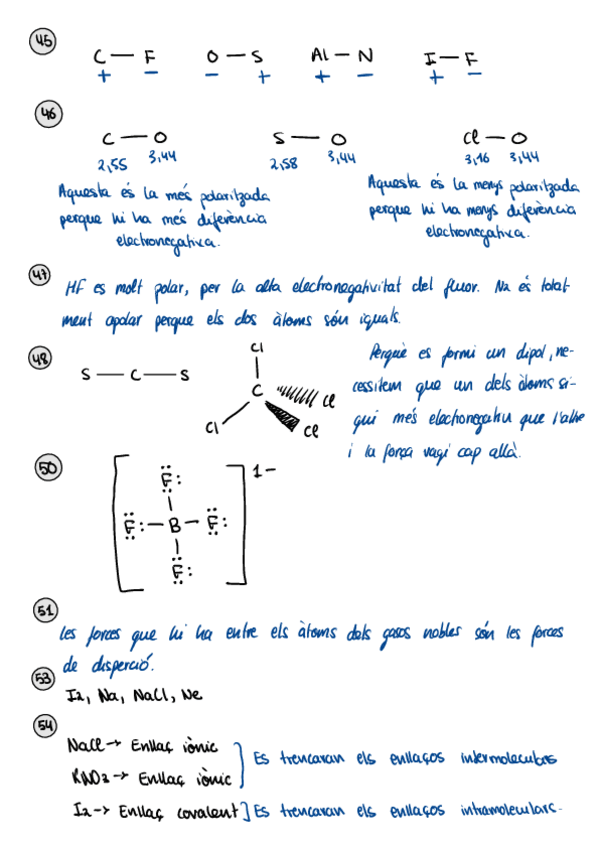 45
C — F O — S Al — N I — F
+ − − + + − + −
46
C — O S — O Cl — O
2,55 3,44 2,58 3,44 3,16 3,44
Aquesta és la més polaritzada
perque hi ha més diferència
electronegativa.
Aquesta és la menys polaritzada
perque hi ha menys diferència
electronegativa.
47
HF es molt polar, per la alta electronegativitat del fluor. N2 és total-
ment apolar perque els dos àtoms són iguals.
48
S — C — S
Cl
C
Cl
Cl
Cl
Perquè es formi un dipol, ne-
cessitem que un dels àtoms si-
gui més electronegatiu que l'altre
i la força vagi cap allà.
50
1-
F
F — B — F
F
51
Les forces que hi ha entre els àtoms dels gasos nobles són les forces
de disperció.
53
I2, Na, NaCl, Ne
54
NaCl → Enllaç iònic
KNO3 → Enllaç iònic
Es trencaran els enllaços intermoleculars
I2 → Enllaç covalent] Es trencaran els enllaços intramoleculars.